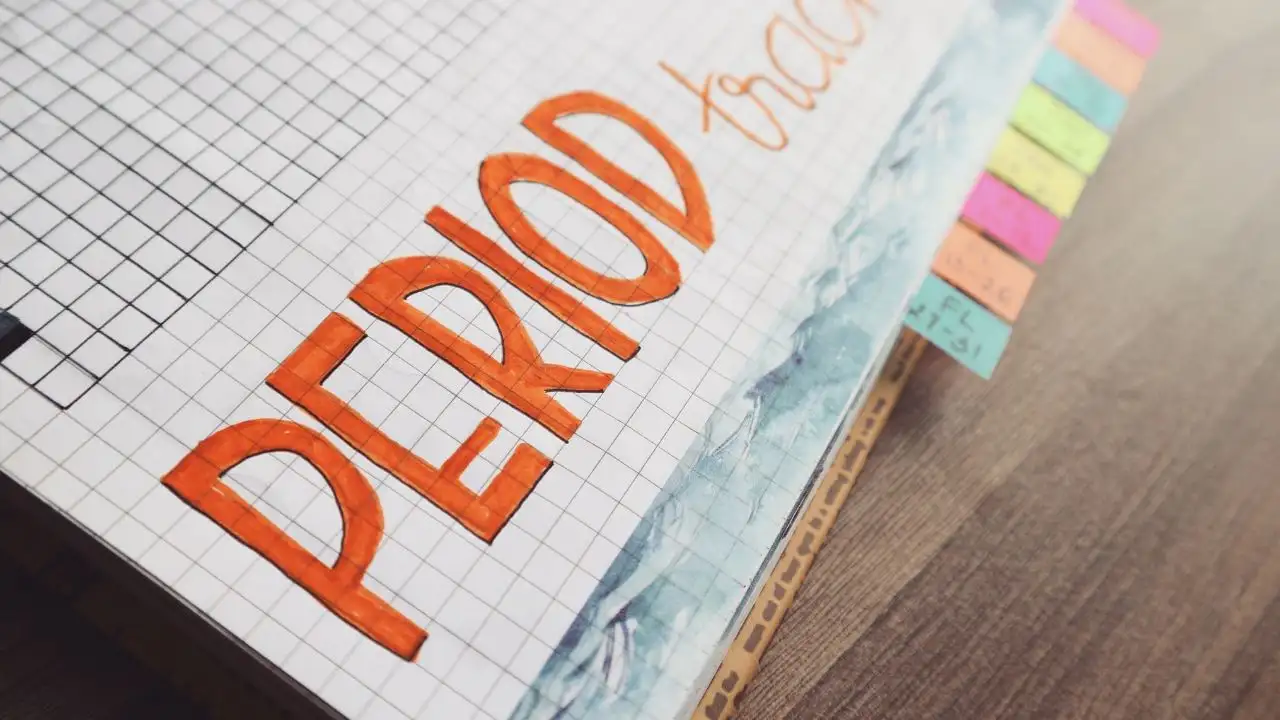 PERIOD trac
FL
27-31